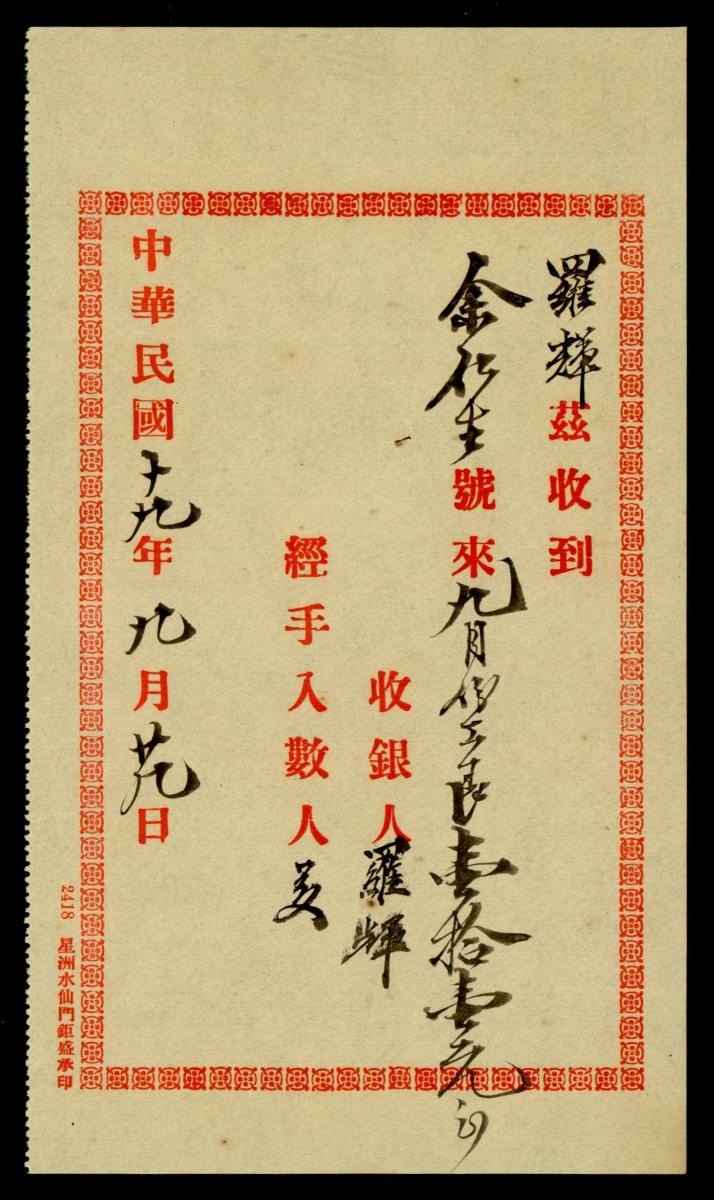 羅輝茲收到
余仁生號來九月份工艮壹拾壹元正
收銀人羅輝
經手入數人
中華民國十九年九月廿九日
2418 星洲水仙門鉅盛承印